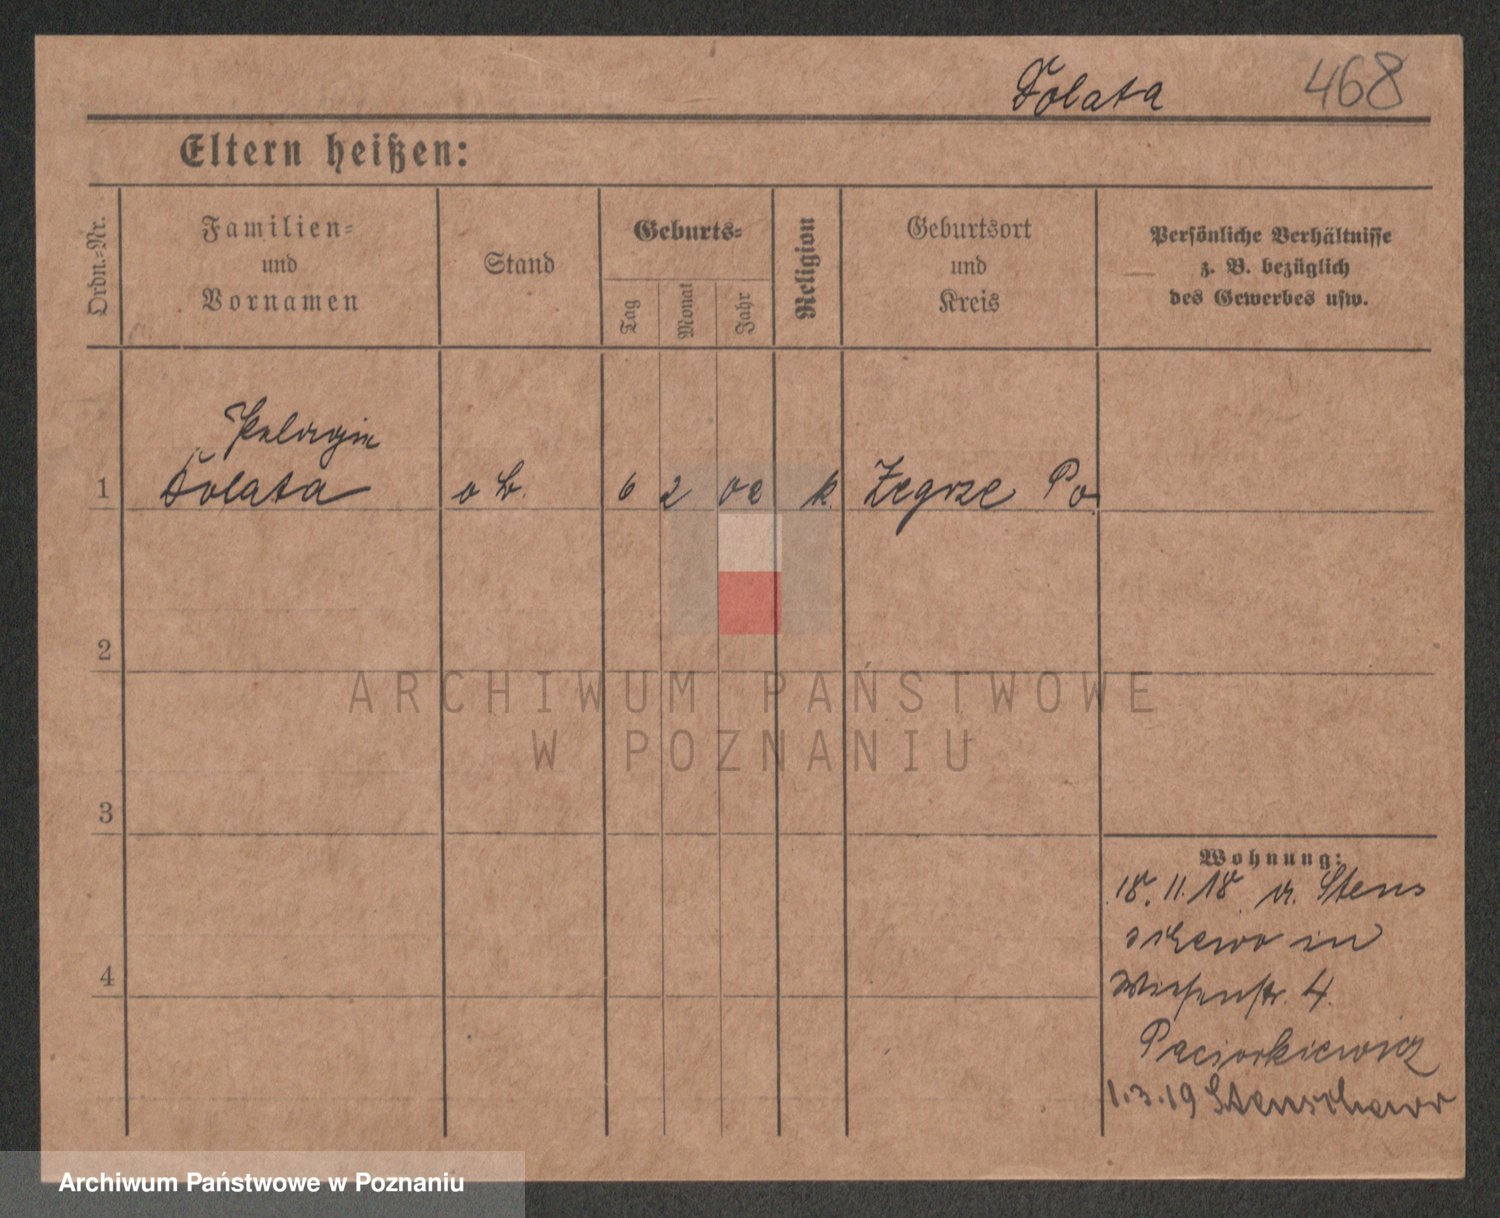 Tolata 468
Eltern heißen:
Ordn.-Nr.
Familien-
und
Vornamen
Stand
Geburts-
Tag
Monat
Jahr
Religion
Geburtsort
und
Kreis
Persönliche Verhältnisse
z. B. bezüglich
des Gewerbes usw.
Pelagia
1 Tolata o B. 6 2 00 k. Zegrze Po.
2
3
4
ARCHIWUM PAŃSTWOWE
W POZNANIU
Wohnung:
18. 11. 18 v. Stens
chewo in
Wiesenstr. 4.
Paciorkiewicz
1.3.19 Stenschewo
Archiwum Państwowe w Poznaniu